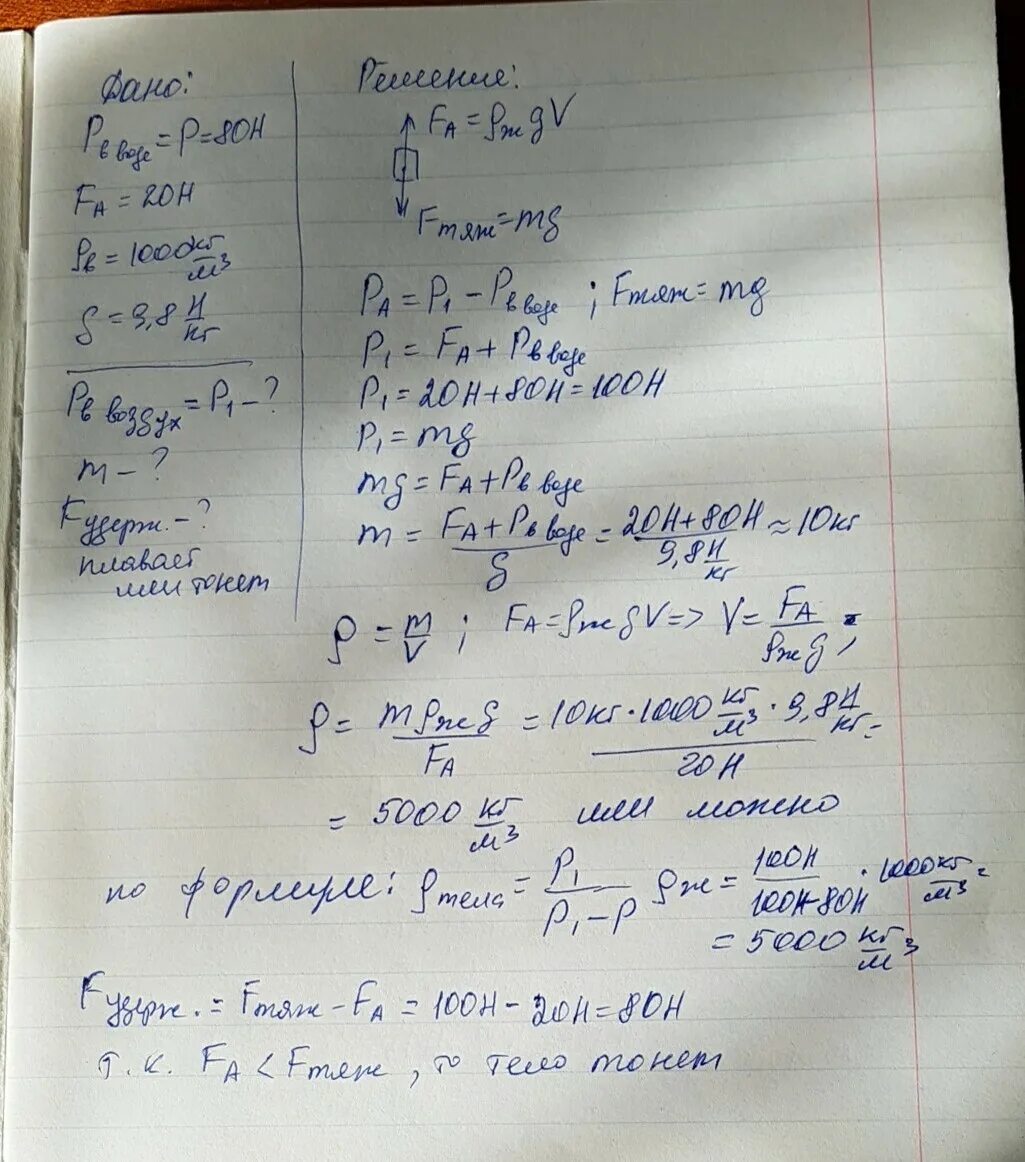 Дано:
P в воде = P = 80Н
F_A = 20Н
ρв = 1000 кг/м³
g = 9,8 Н/кг
P в воздух = P₁ - ?
m - ?
F удерж. - ?
плавает
или тонет
Решение:
F_A = ρж gV
F тяж = mg
P_A = P₁ - P в воде ; F тяж = mg
P₁ = F_A + P в воде
P₁ = 20Н + 80Н = 100Н
P₁ = mg
mg = F_A + P в воде
m = (F_A + P в воде)/g = (20Н + 80Н)/(9,8 Н/кг) ≈ 10кг
ρ = m/V ; F_A = ρж gV => V = F_A/(ρж g) ;
ρ = (m ρж g)/F_A = (10кг · 1000 кг/м³ · 9,8 Н/кг)/20Н =
= 5000 кг/м³ или можно
по формуле: ρ тела = P₁/(P₁ - P) ρж = 100Н/(100Н - 80Н) · 1000 кг/м³ =
= 5000 кг/м³
F удерж. = F тяж - F_A = 100Н - 20Н = 80Н
Т.к. F_A < F тяж, то тело тонет